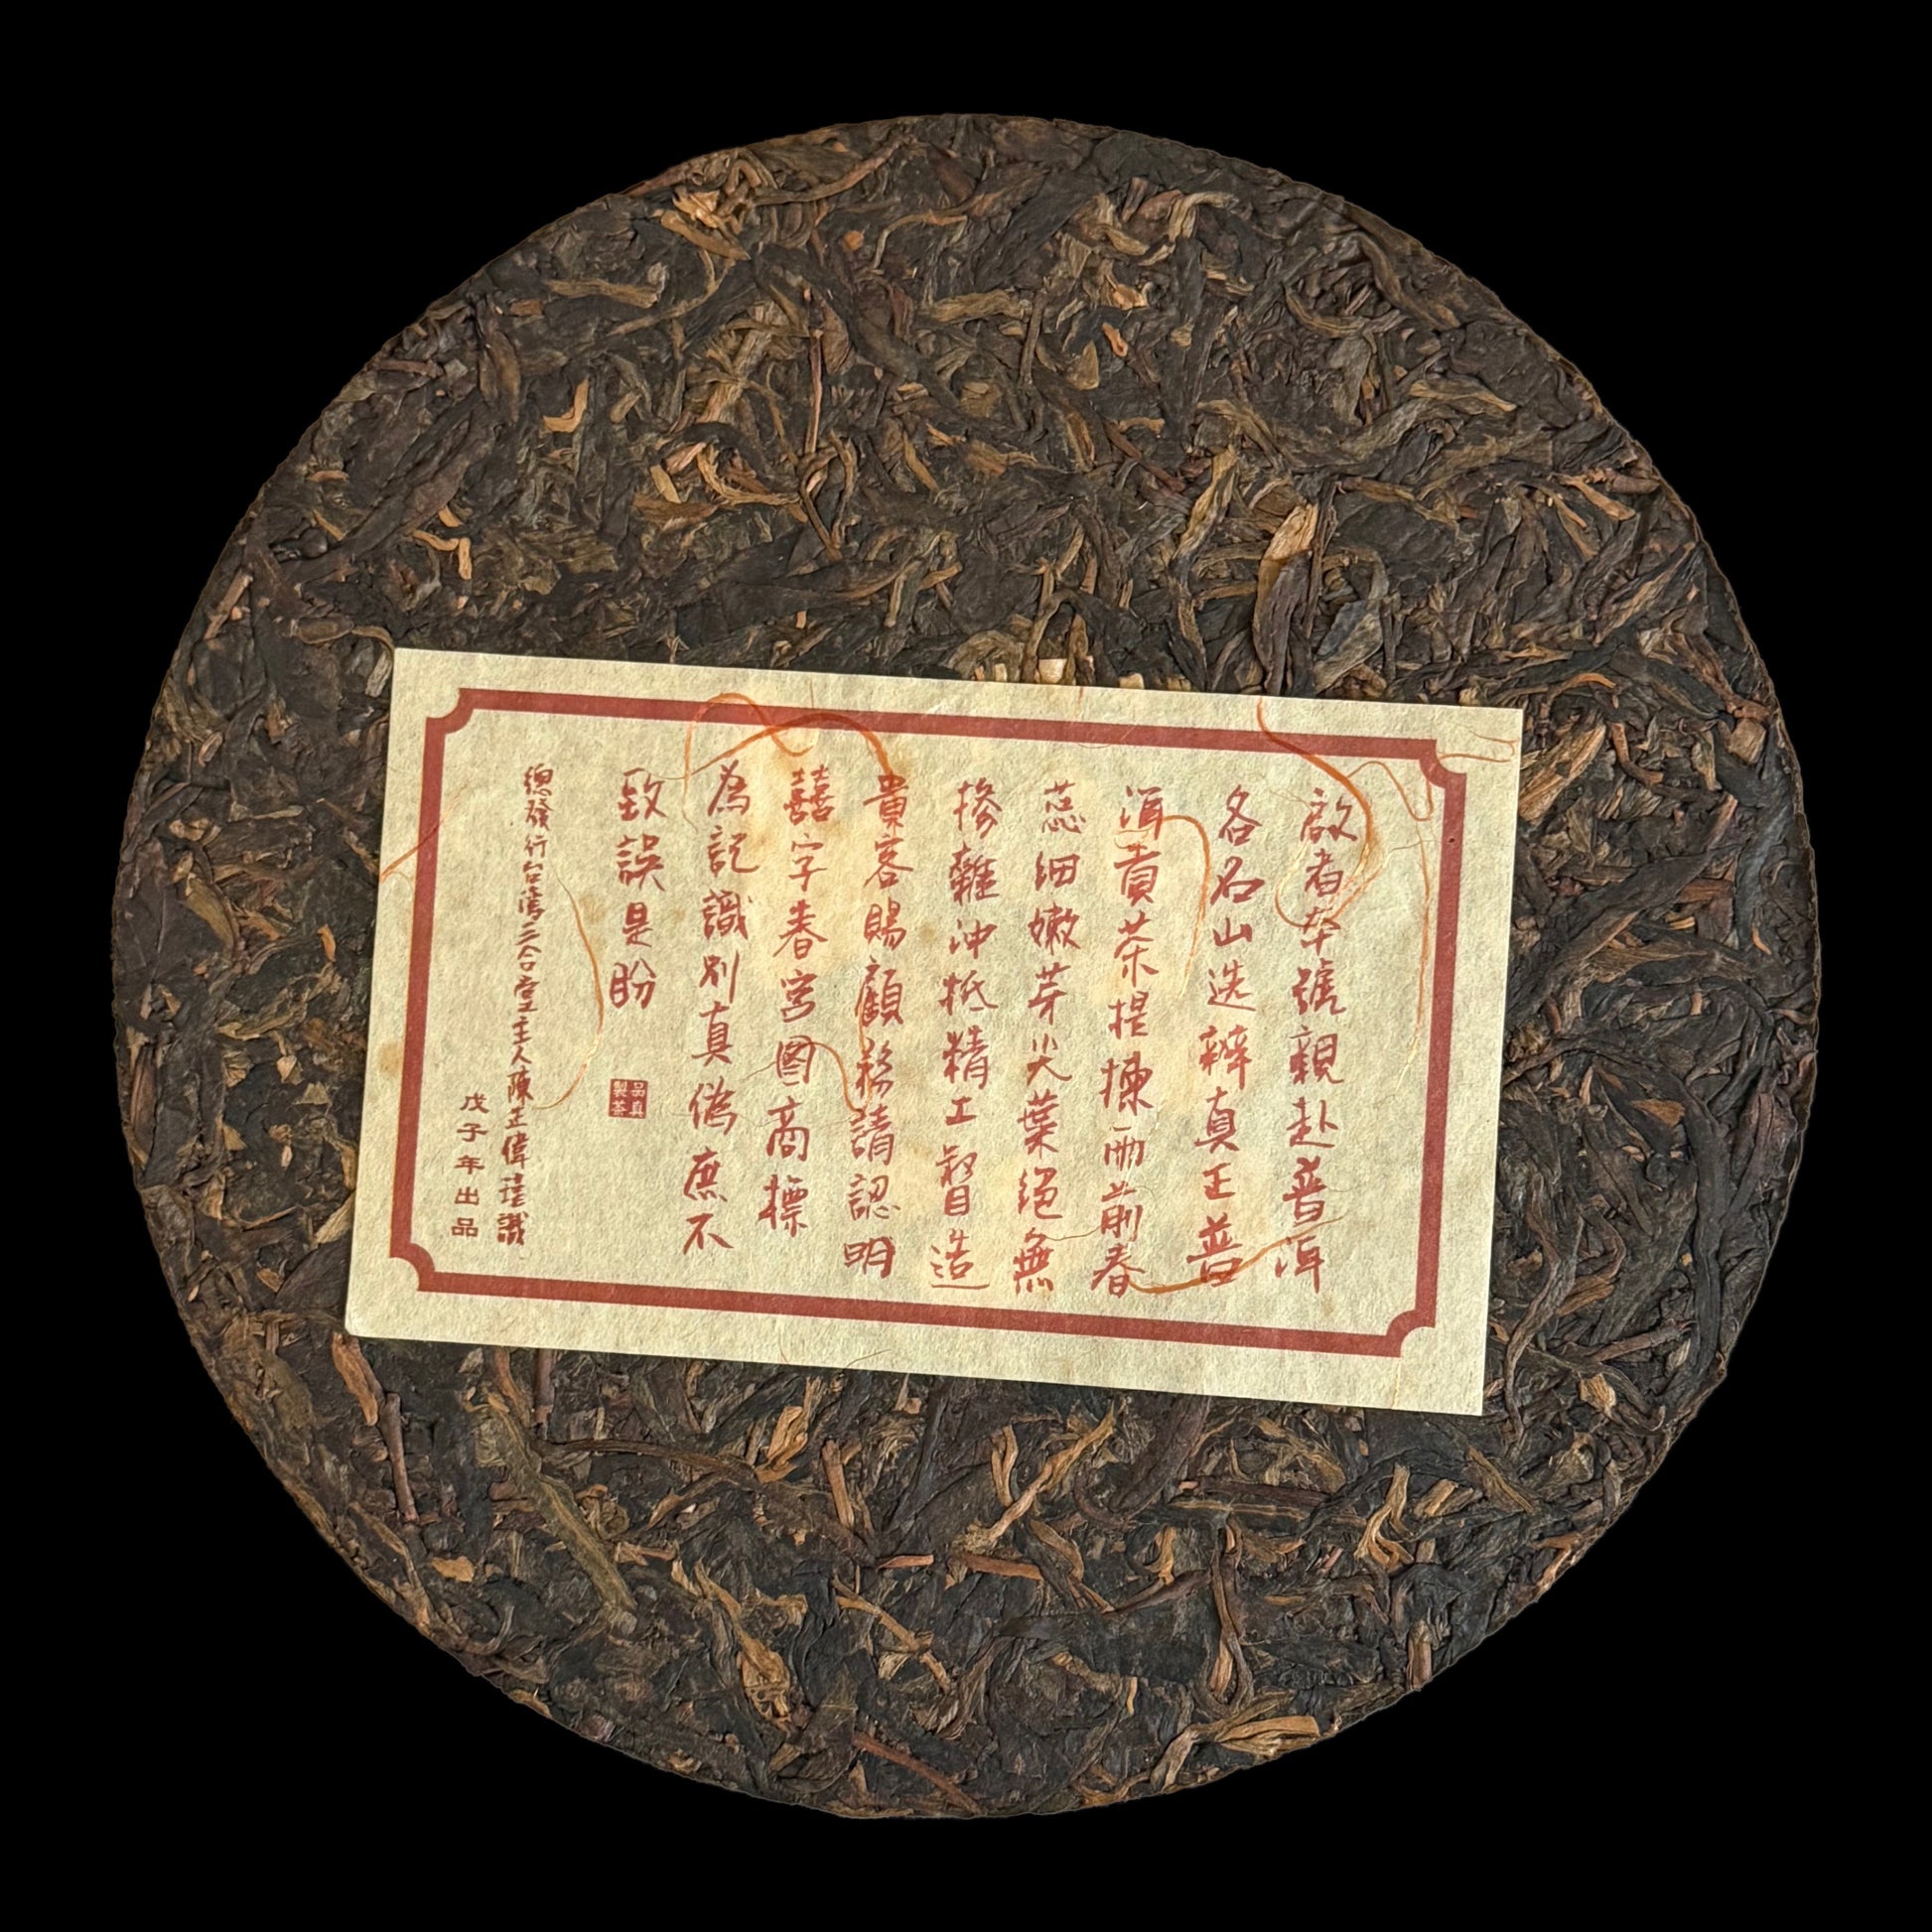 啟者本號親赴普洱
各名山选辨真正普
洱貢茶提揀雨前春
蕊细嫩芽尖葉絕無
摻雜沖抵精工督造
貴客賜顧務請認明
囍字春宮图商標
為記識別真偽庶不
致誤是盼
品真製茶
總發行台灣三合堂主人陳正偉謹識
戊子年出品